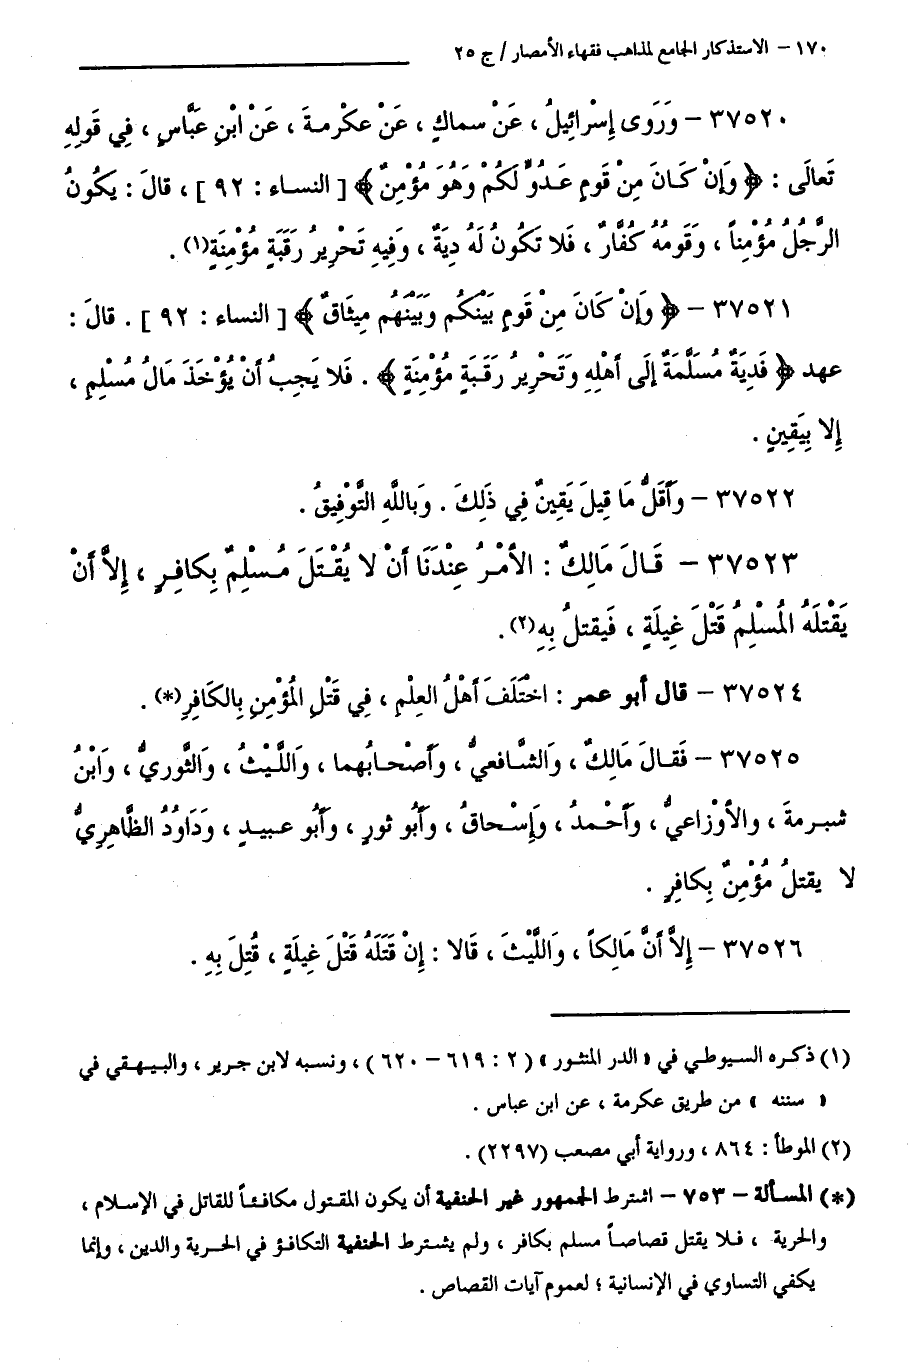 ١٧٠ - الاستذكار الجامع لمذاهب فقهاء الأمصار / ج ٢٥
٣٧٥٢٠ - وَرَوى إِسْرائِيلُ ، عَنْ سماكٍ ، عَنْ عكْرمةَ ، عَنْ ابْنِ عبَّاسٍ ، فِي قَولِهِ
تَعالَى : ﴿ وَإِنْ كَـانَ مِنْ قَومٍ عَدُوٍّ لَكُمْ وَهُوَ مُؤْمِنٌ ﴾ [ النساء : ٩٢ ] ، قالَ : يكُونُ
الرَّجُلُ مُؤْمِناً ، وَقَومُهُ كُفَّارٌ ، فَلا تكُونُ لَهُ ديَةٌ ، وَفِيهِ تَحْرِيرُ رَقَبَةٍ مُؤْمِنَةٍ(١) .
٣٧٥٢١ - ﴿ وَإِنْ كَانَ مِنْ قَومٍ بَيْنَكُم وَبَيْنَهُم مِيثَاقٌ ﴾ [ النساء : ٩٢ ] . قالَ :
عهد ﴿ فَدِيَةٌ مُسَلَّمَةٌ إِلَى أَهْلِهِ وَتَحْرِيرُ رَقَبَةٍ مُؤْمِنَةٍ ﴾ . فَلا يَجِبُ أَنْ يُؤْخَذَ مَالُ مُسْلِمٍ ،
إِلا بِيَقِينٍ .
٣٧٥٢٢ - وَأَقَلُّ مَا قِيلَ يَقِينٌ فِي ذَلِكَ . وَبِاللَّهِ التَّوْفِيقُ .
٣٧٥٢٣ - قَـالَ مَالِكٌ : الأَمْـرُ عِنْدَنَا أَنْ لا يُقْتَلَ مُـسْلِمٌ بِكافِـرٍ ، إِلاَّ أَنْ
يَقْتلَهُ المُسْلِمُ قَتْلَ غِيلَةٍ ، فَيقتلُ بِهِ(٢) .
٣٧٥٢٤ - قال أبو عمر : اخْتَلَفَ أَهْلُ العِلْمِ ، فِي قَتْلِ المُؤْمِنِ بِالكَافِرِ(*) .
٣٧٥٢٥ - فَقـالَ مَالِكٌ ، وَالشَّافعيُّ ، وَأَصْحابُهما ، وَاللَّيْثُ ، وَالثَّوريُّ ، وَابْنُ
شبرمةَ ، والأوْزاعيُّ ، وَأَحْمـدُ ، وَإِسْـحاقُ ، وَأَبُو ثورٍ ، وَأَبُو عـبيـدٍ ، وَدَاوُدُ الظَّاهِرِيُّ
لا يقتلُ مُؤْمِنٌ بِكافِرٍ .
٣٧٥٢٦ - إِلاَّ أَنَّ مَالِكاً ، وَاللَّيْثَ ، قَالا : إِنْ قَتَلَهُ قَتْلَ غِيلَةٍ ، قُتِلَ بِهِ .
(١) ذكره السيوطي في « الدر المنثور » ( ٢ : ٦١٩ - ٦٢٠ ) ، ونسبه لابن جرير ، والبيهقي في
« سننه » من طريق عكرمة ، عن ابن عباس .
(٢) الموطأ : ٨٦٤ ، ورواية أبي مصعب (٢٢٩٧) .
(*) المسألة - ٧٥٣ - اشترط الجمهور غير الحنفية أن يكون المقتول مكافئاً للقاتل في الإسلام ،
والحرية ، فـلا يقتل قصاصاً مسلم بكافر ، ولم يشترط الحنفية التكافؤ في الحرية والدين ، وإنما
يكفي التساوي في الإنسانية ؛ لعموم آيات القصاص .